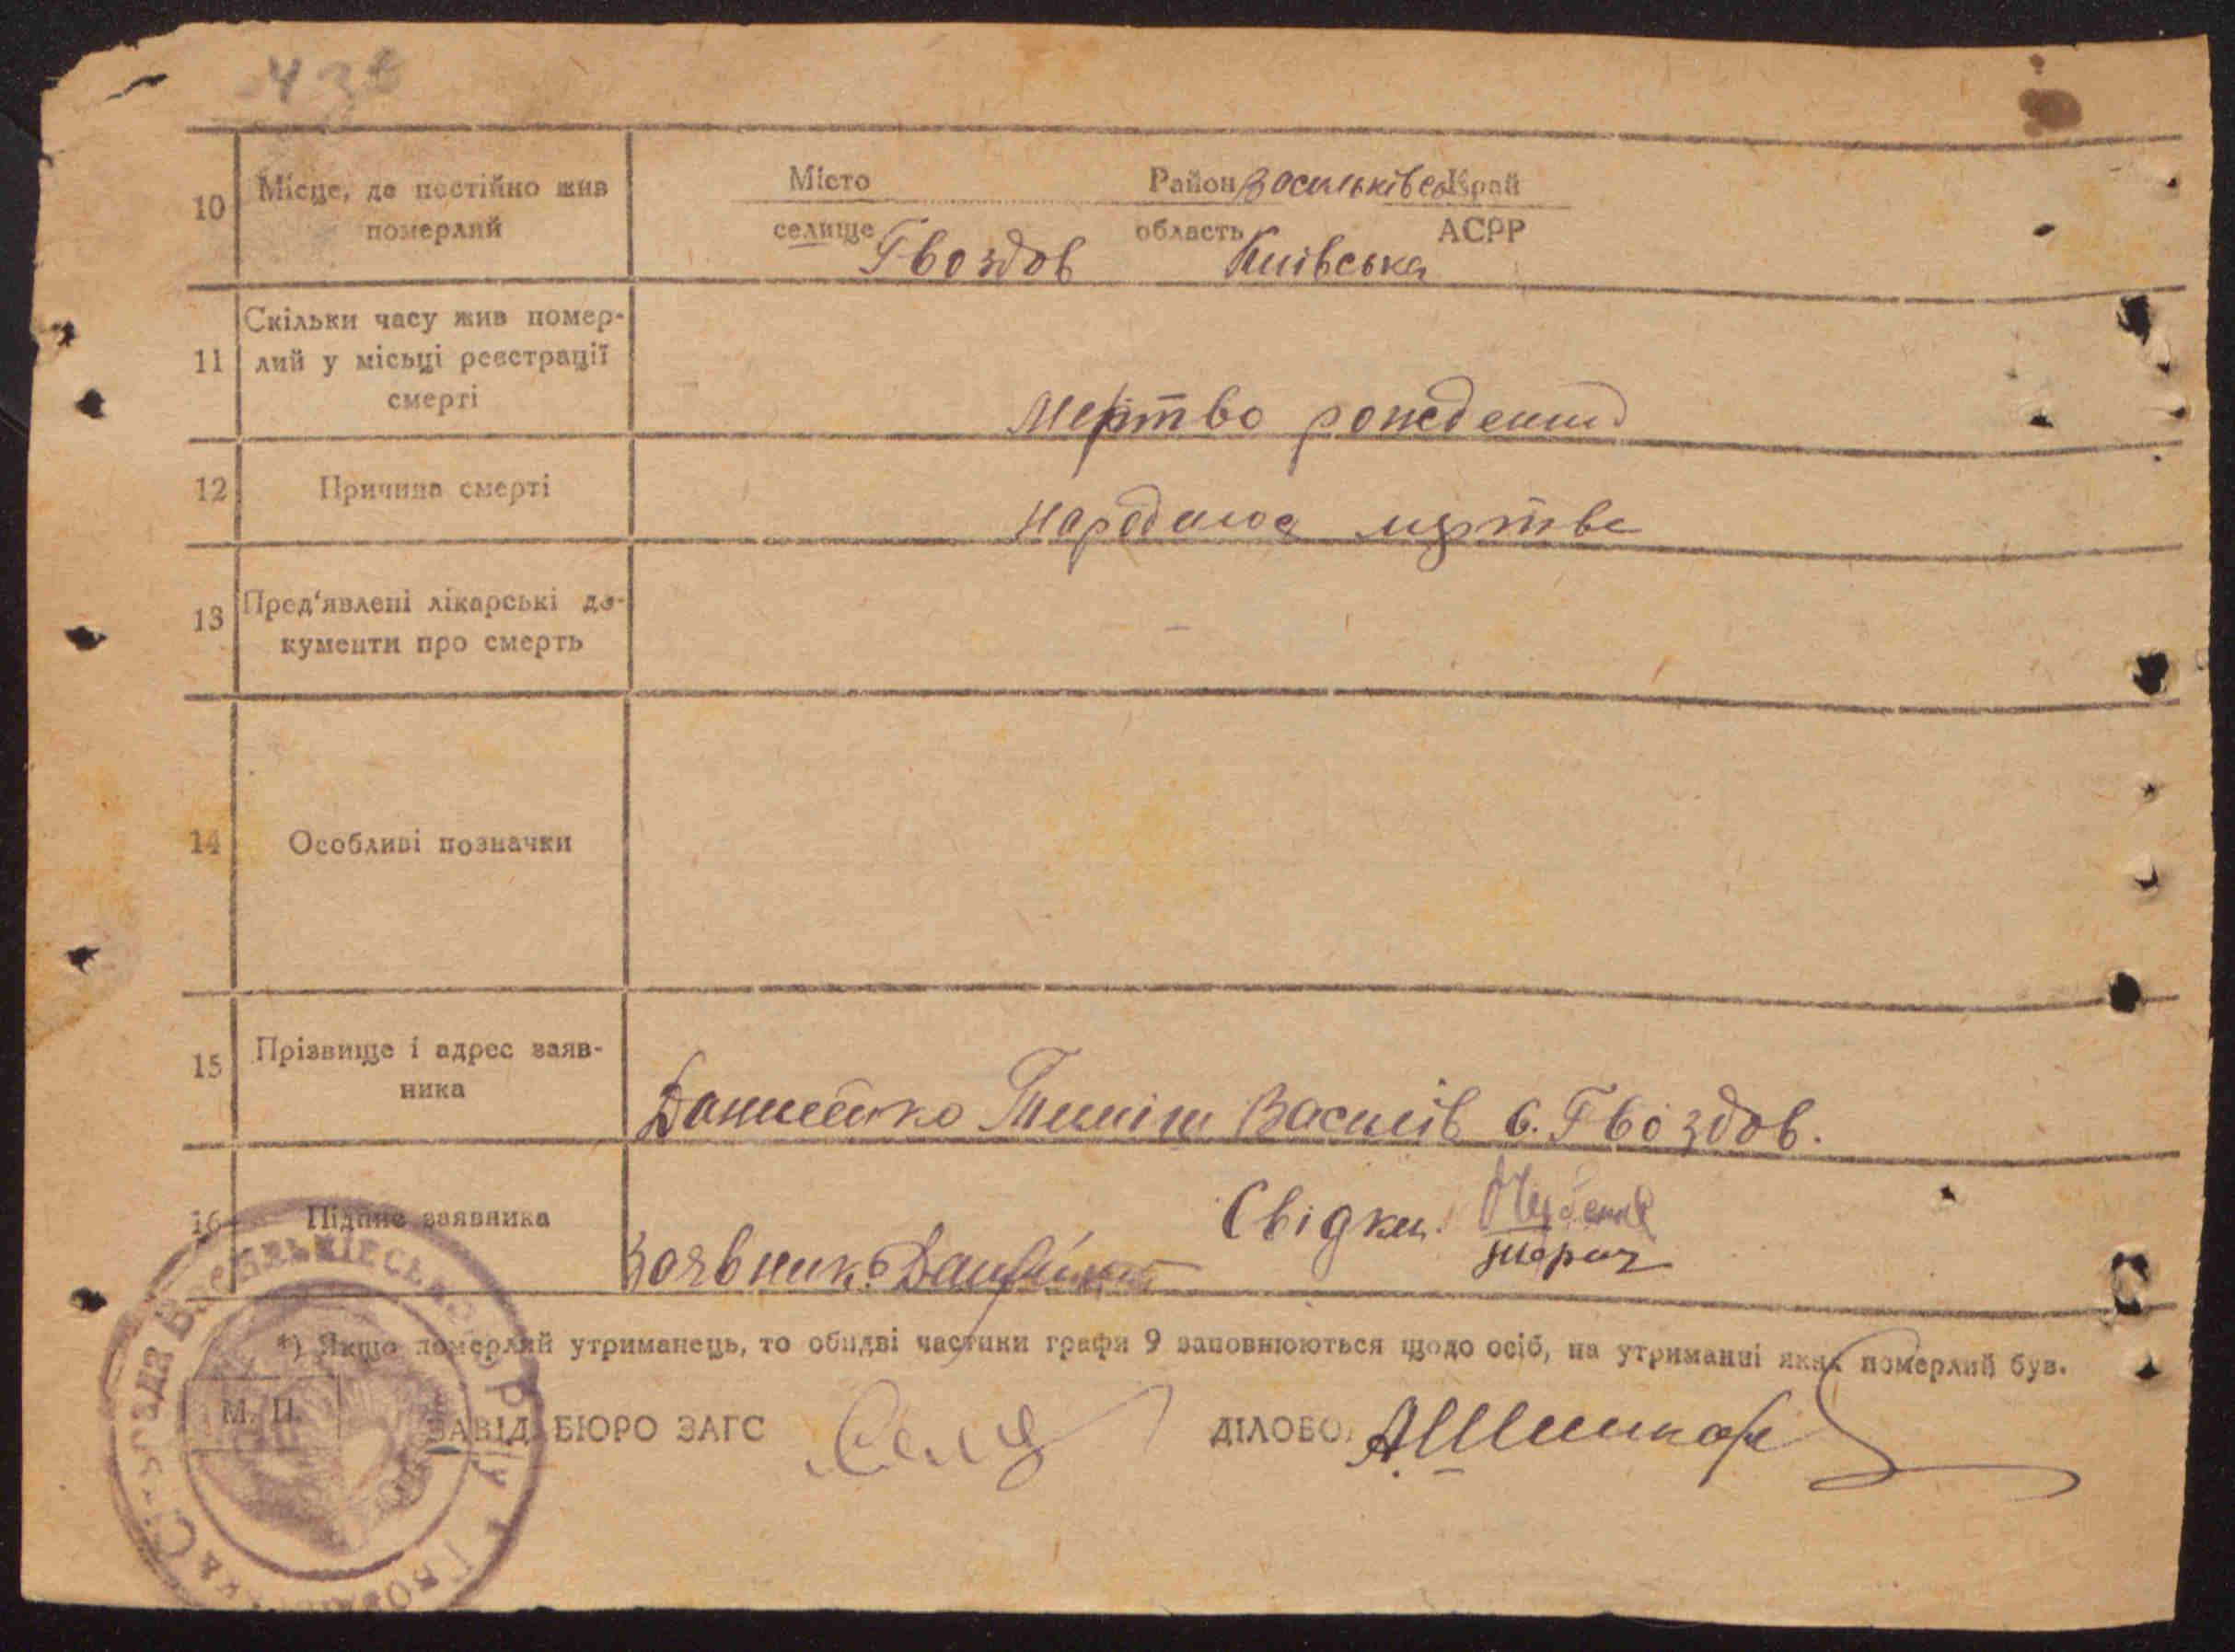 436
10 Місце, де постійно жив Місто Район Васильківськ Край
померлий селище Гвоздов область Київська АСРР
11 Скільки часу жив помер-
лий у місьці реєстрації
смерті Мертво рожденний
12 Причина смерті Народилося мертве
13 Пред'явлені лікарські до-
кументи про смерть
14 Особливі позначки
15 Прізвище і адрес заяв-
ника Данилейко Василів с. Гвоздов.
16 Підпис заявника Заявник: Свідки:
*) Якщо померлий утриманець, то обидві частини графи 9 заповнюються щодо осіб, на утриманні яких померлий був.
М. П. ЗАВІД. БЮРО ЗАГС ДІЛОВОД